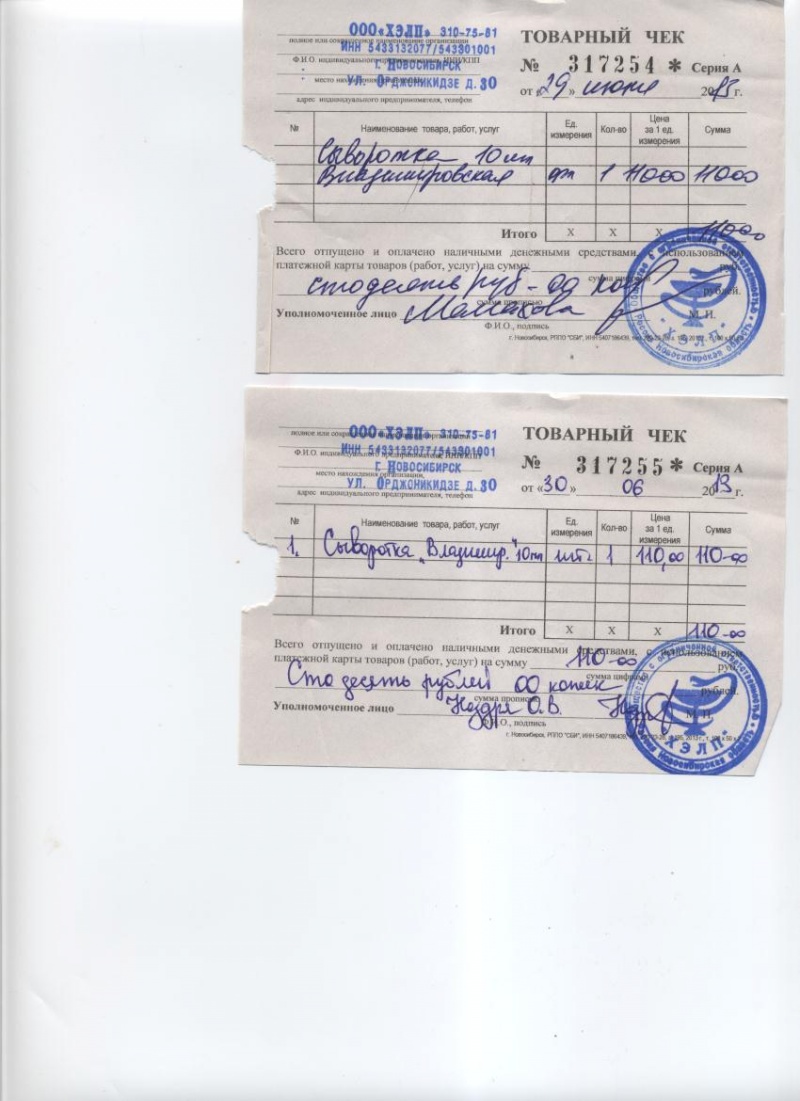 ООО«ХЭЛП» 310-75-61
полное или сокращенное наименование организации
ИНН 5433132077/543301001
Ф.И.О. индивидуального предпринимателя, ИНН/КПП
г. Новосибирск
место нахождения организации,
ул. Орджоникидзе д. 30
адрес индивидуального предпринимателя, телефон
ТОВАРНЫЙ ЧЕК
№ 317254 * Серия А
от «29» июня 2013 г.
№ Наименование товара, работ, услуг Ед. измерения Кол-во Цена за 1 ед. измерения Сумма
Сыворотка 10шт
Владимировская 1 11000 11000
Итого X X X 11000
Всего отпущено и оплачено наличными денежными средствами, с использованием
платежной карты товаров (работ, услуг) на сумму руб.
сумма цифрами
сто десять руб - 00 коп рублей.
сумма прописью
Уполномоченное лицо М. П.
Ф.И.О., подпись
"ХЭЛП"
ООО«ХЭЛП» 310-75-61
полное или сокращенное наименование организации
ИНН 5433132077/543301001
Ф.И.О. индивидуального предпринимателя, ИНН/КПП
г. Новосибирск
место нахождения организации,
ул. Орджоникидзе д. 30
адрес индивидуального предпринимателя, телефон
ТОВАРНЫЙ ЧЕК
№ 317255 * Серия А
от «30» 06 2013 г.
№ Наименование товара, работ, услуг Ед. измерения Кол-во Цена за 1 ед. измерения Сумма
1. Сыворотка „Владимир." 10шт шт. 1 110,00 110-00
Итого X X X 110-00
Всего отпущено и оплачено наличными денежными средствами, с использованием
платежной карты товаров (работ, услуг) на сумму 110-00 руб.
сумма цифрами
Сто десять рублей 00 копеек рублей.
сумма прописью
Уполномоченное лицо Ноздря О.В. М. П.
Ф.И.О., подпись
"ХЭЛП"